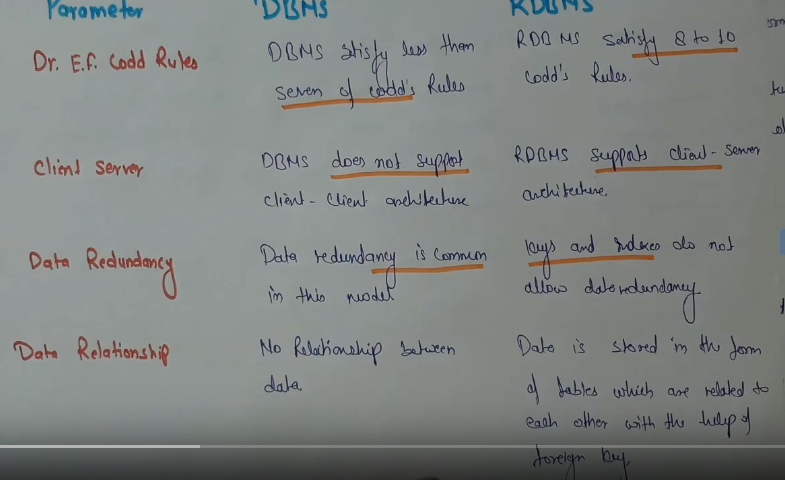 Parameter DBMS RDBMS
Dr. E.F. Codd Rules
DBMS satisfy less than
seven of codd's Rules
RDBMS satisfy 8 to 10
Codd's Rules.
Client Server
DBMS does not support
client-client architecture
RDBMS supports client-server
architecture.
Data Redundancy
Data redundancy is common
in this model
keys and indexes do not
allow data redundancy
Data Relationship
No Relationship between
data.
Data is stored in the form
of tables which are related to
each other with the help of
foreign key.